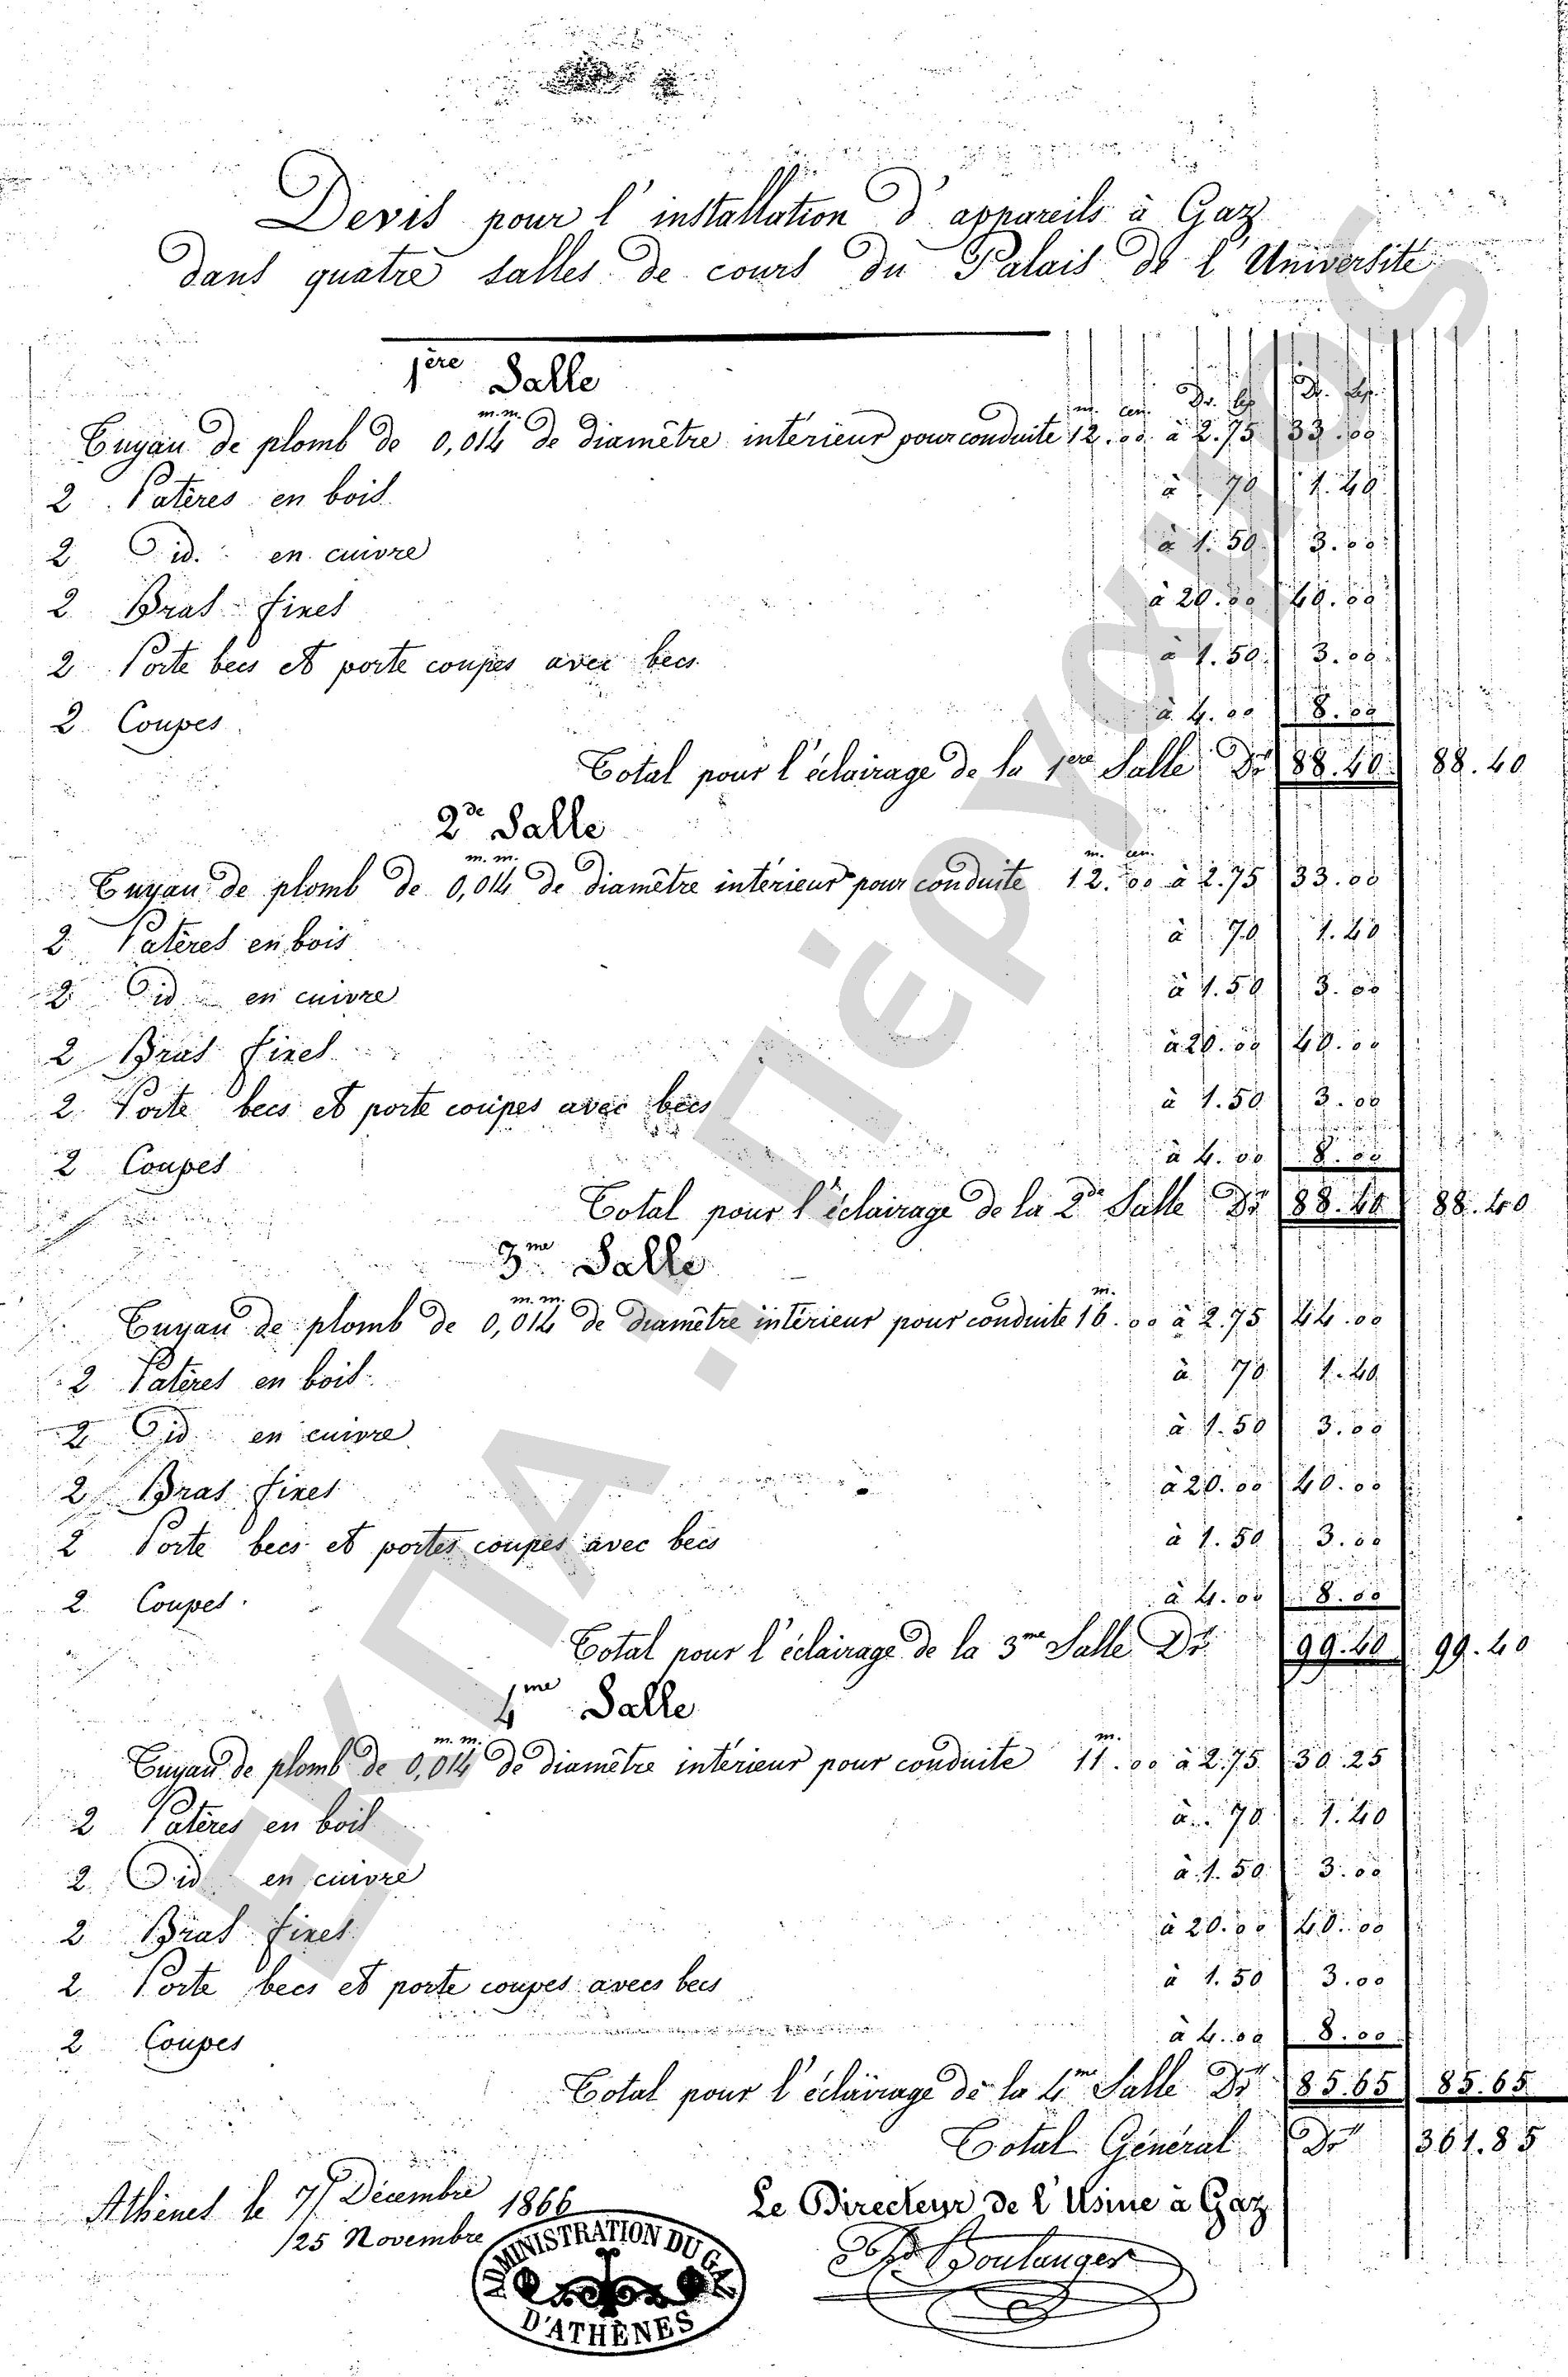 Devis pour l' installation d' appareils à Gaz
dans quatre salles de cours du Palais de l' Université
1ère Salle
m. cen. Dr. lep. Dr. lep.
Tuyau de plomb de 0,014 m.m. de diamètre intérieur pour conduite 12.00 à 2.75 33.00
2 Patères en bois à 70 1.40
2 id. en cuivre à 1.50 3.00
2 Bras fixes à 20.00 40.00
2 Porte becs et porte coupes avec becs à 1.50 3.00
2 Coupes à 4.00 8.00
Total pour l'éclairage de la 1ère Salle Dr 88.40 88.40
2de Salle
m. cen.
Tuyau de plomb de 0,014 m.m. de diamètre intérieur pour conduite 12.00 à 2.75 33.00
2 Patères en bois à 70 1.40
2 id en cuivre à 1.50 3.00
2 Bras fixes à 20.00 40.00
2 Porte becs et porte coupes avec becs à 1.50 3.00
2 Coupes à 4.00 8.00
Total pour l'éclairage de la 2de Salle Dr 88.40 88.40
3me Salle
m.
Tuyau de plomb de 0,014 m.m. de diamètre intérieur pour conduite 16.00 à 2.75 44.00
2 Patères en bois à 70 1.40
2 id en cuivre à 1.50 3.00
2 Bras fixes à 20.00 40.00
2 Porte becs et portes coupes avec becs à 1.50 3.00
2 Coupes à 4.00 8.00
Total pour l'éclairage de la 3me Salle Dr 99.40 99.40
4me Salle
m.
Tuyau de plomb de 0,014 m.m. de diamètre intérieur pour conduite 11.00 à 2.75 30.25
2 Patères en bois à 70 1.40
2 id en cuivre à 1.50 3.00
2 Bras fixes à 20.00 40.00
2 Porte becs et porte coupes avecs becs à 1.50 3.00
2 Coupes à 4.00 8.00
Total pour l'éclairage de la 4me Salle Dr 85.65 85.65
Total Général Dr 361.85
Athènes le 7/ Décembre 1866
/25 Novembre
Le Directeur de l'Usine à Gaz
Boulanger
ADMINISTRATION DU GAZ
D'ATHÈNES
ΕΚΠΑ - Πέργαμος